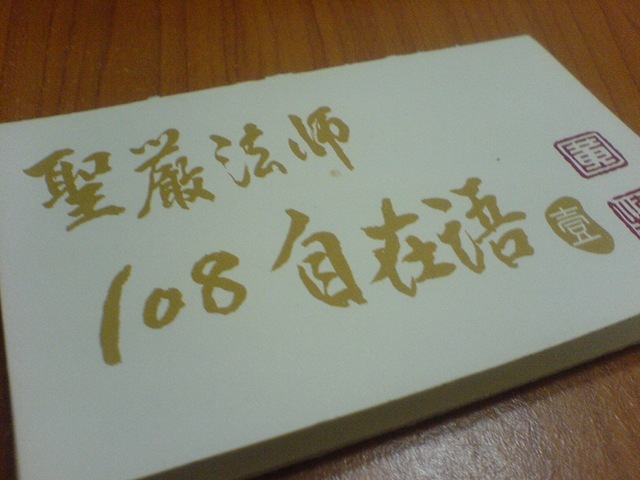 聖嚴法师
108自在语 壹